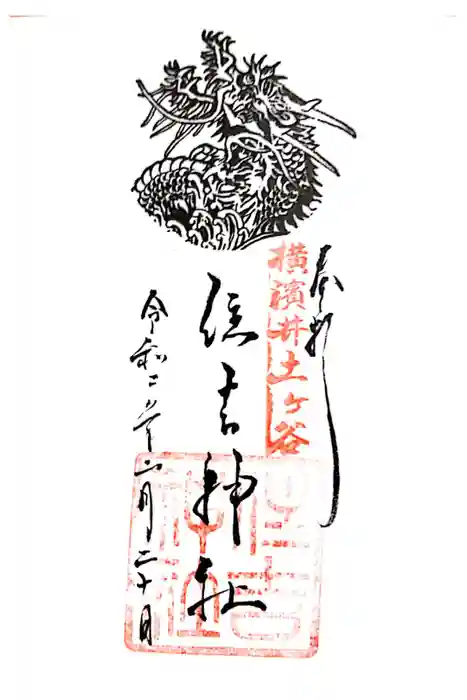 奉拝
横濱井土ヶ谷
住吉神社
住吉神社
令和二年六月二十日